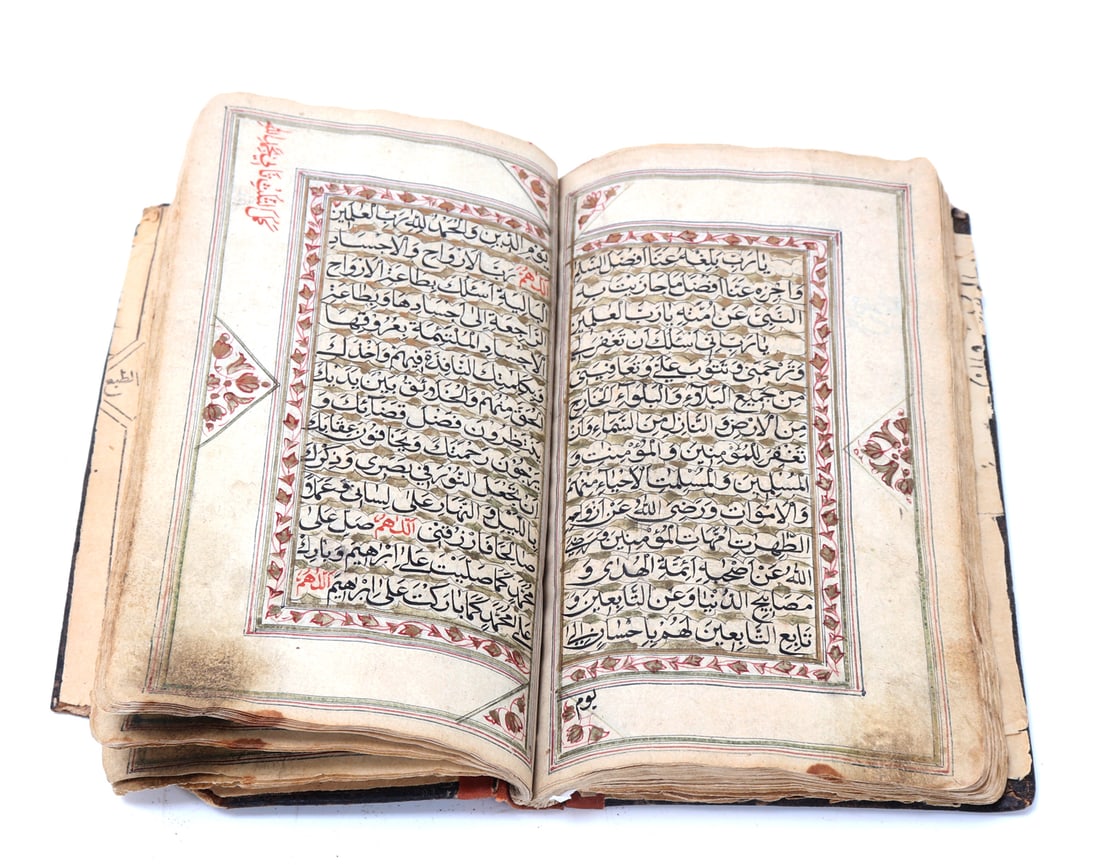 يارب بلغه عنا افضل السلام
واجزه عنا افضل ما جازيت به
النبي عن امته يا رب العلمين
يارب اني اسئلك ان تغفر لي
وترحمني وتتوب علي وتعافيني
من جميع البلاء والبلواء الخارج
من الارض والنازل من السماء وان
تغفر للمؤمنين والمؤمنت و
المسلمين والمسلمت الاحياء منهم
والاموات ورضي الله عن ازواجه
الطهرت امهات المؤمنين ورضي
الله عن اصحبه ائمة الهدى و
مصابيح الدنيا وعن التابعين و
تابع التابعين لهم باحسان الى
يوم
يوم الدين والحمد لله رب العلمين
اللهم رب الارواح والاجساد
البالية اسئلك بطاعة الارواح
الراجعة الى اجسادها وبطاعة
الاجساد الملتئمة بعروقها
وبكلمتك النافذة فيهم واخذك
الحق منهم والخلائق بين يديك
ينتظرون فضل قضائك و
يرجون رحمتك ويخافون عقابك
ان تجعل النور في بصري وذكرك
بالليل والنهار على لساني وعملا
صالحا فارزقني اللهم صل على
محمد كما صليت على ابرهيم وبارك
على محمد كما باركت على ابرهيم اللهم